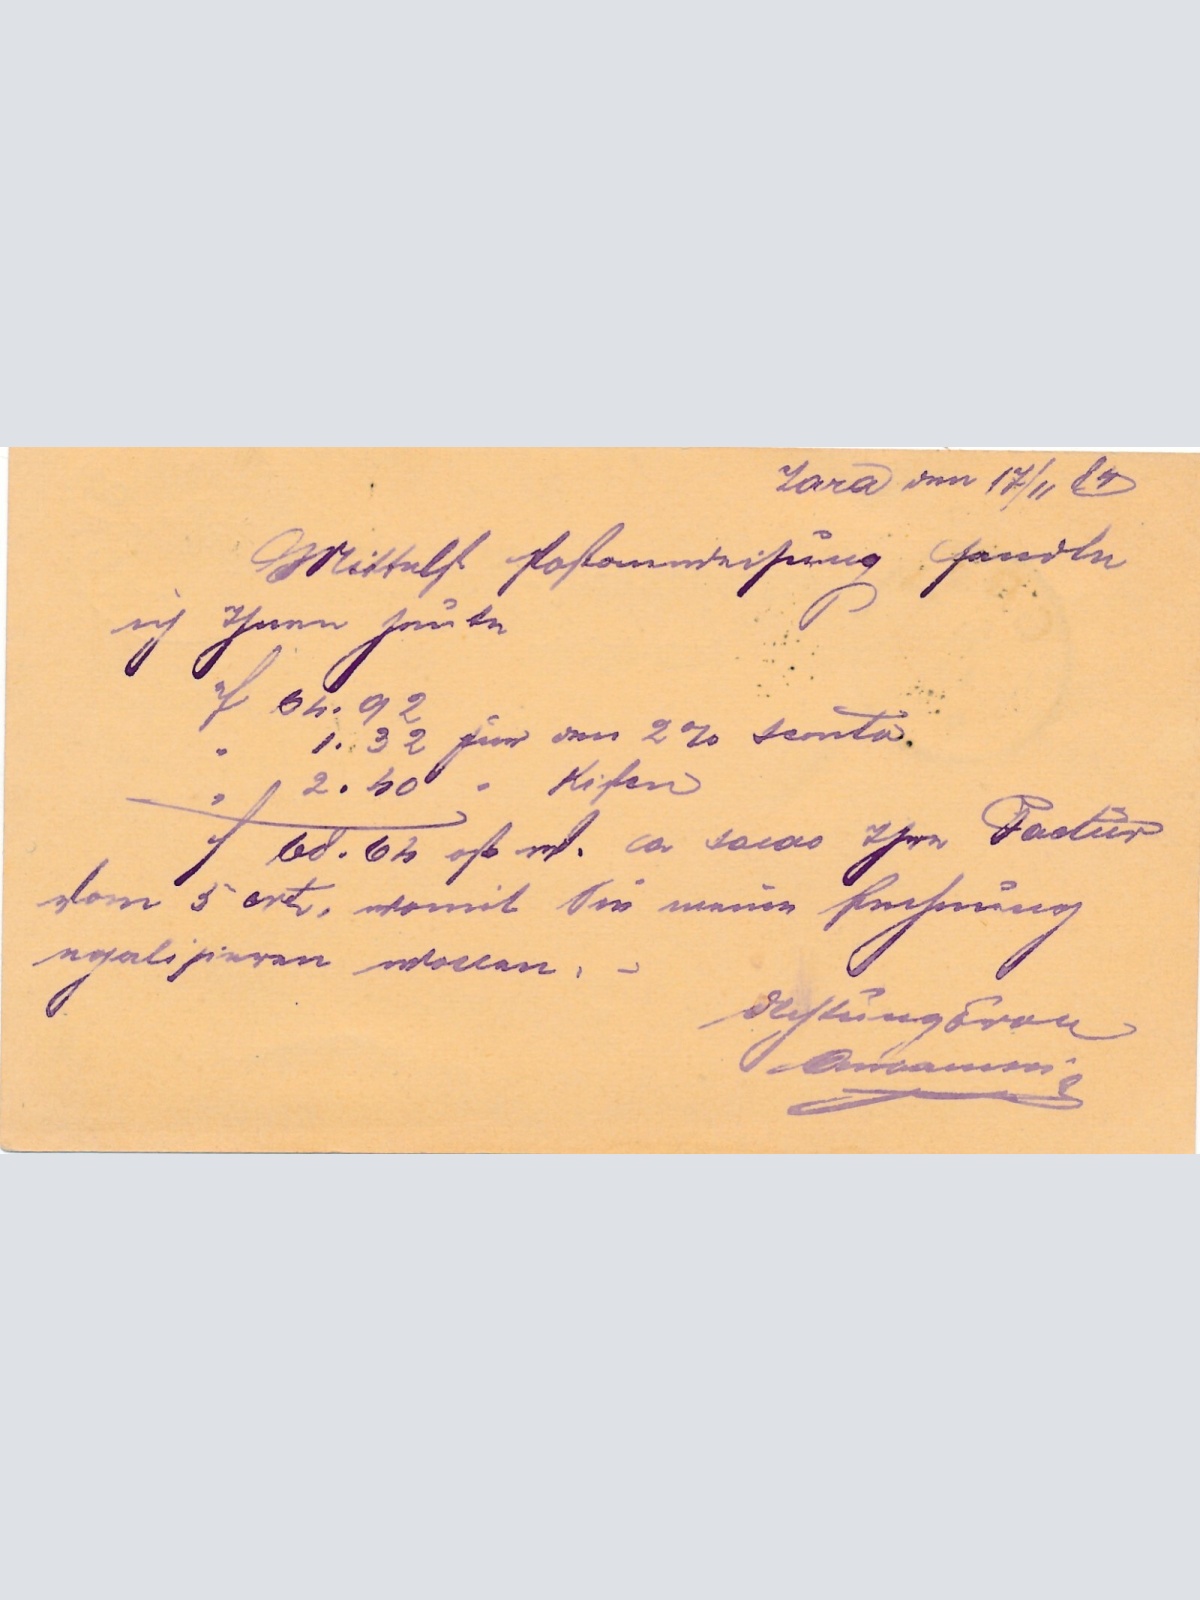 Zara den 17/11 84
Mittelst Postanweisung sandte
ich Ihnen heute
f 64.92
" 1.32 für den 2% Sconto.
" 2.40 " Kisten
f 68.64 öst. W. a saldo Ihre Factur
vom 5 crt., womit Sie meine Rechnung
egalisieren wollen. –
Achtungsvoll